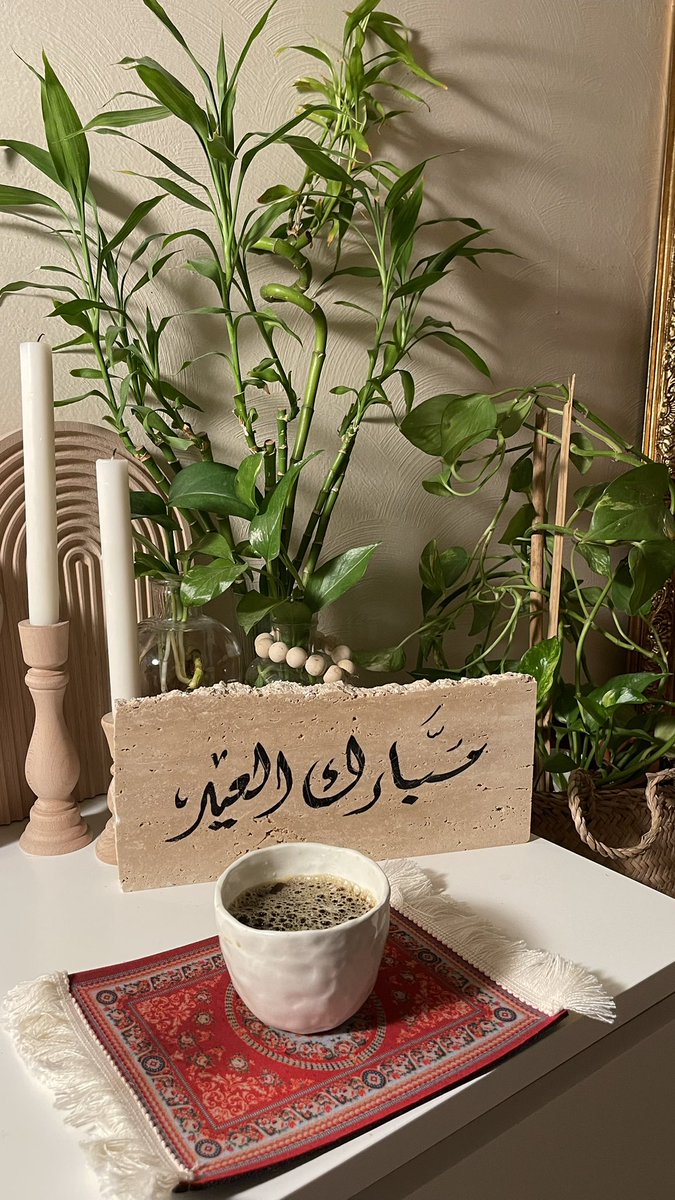 مُبَارَك العيد